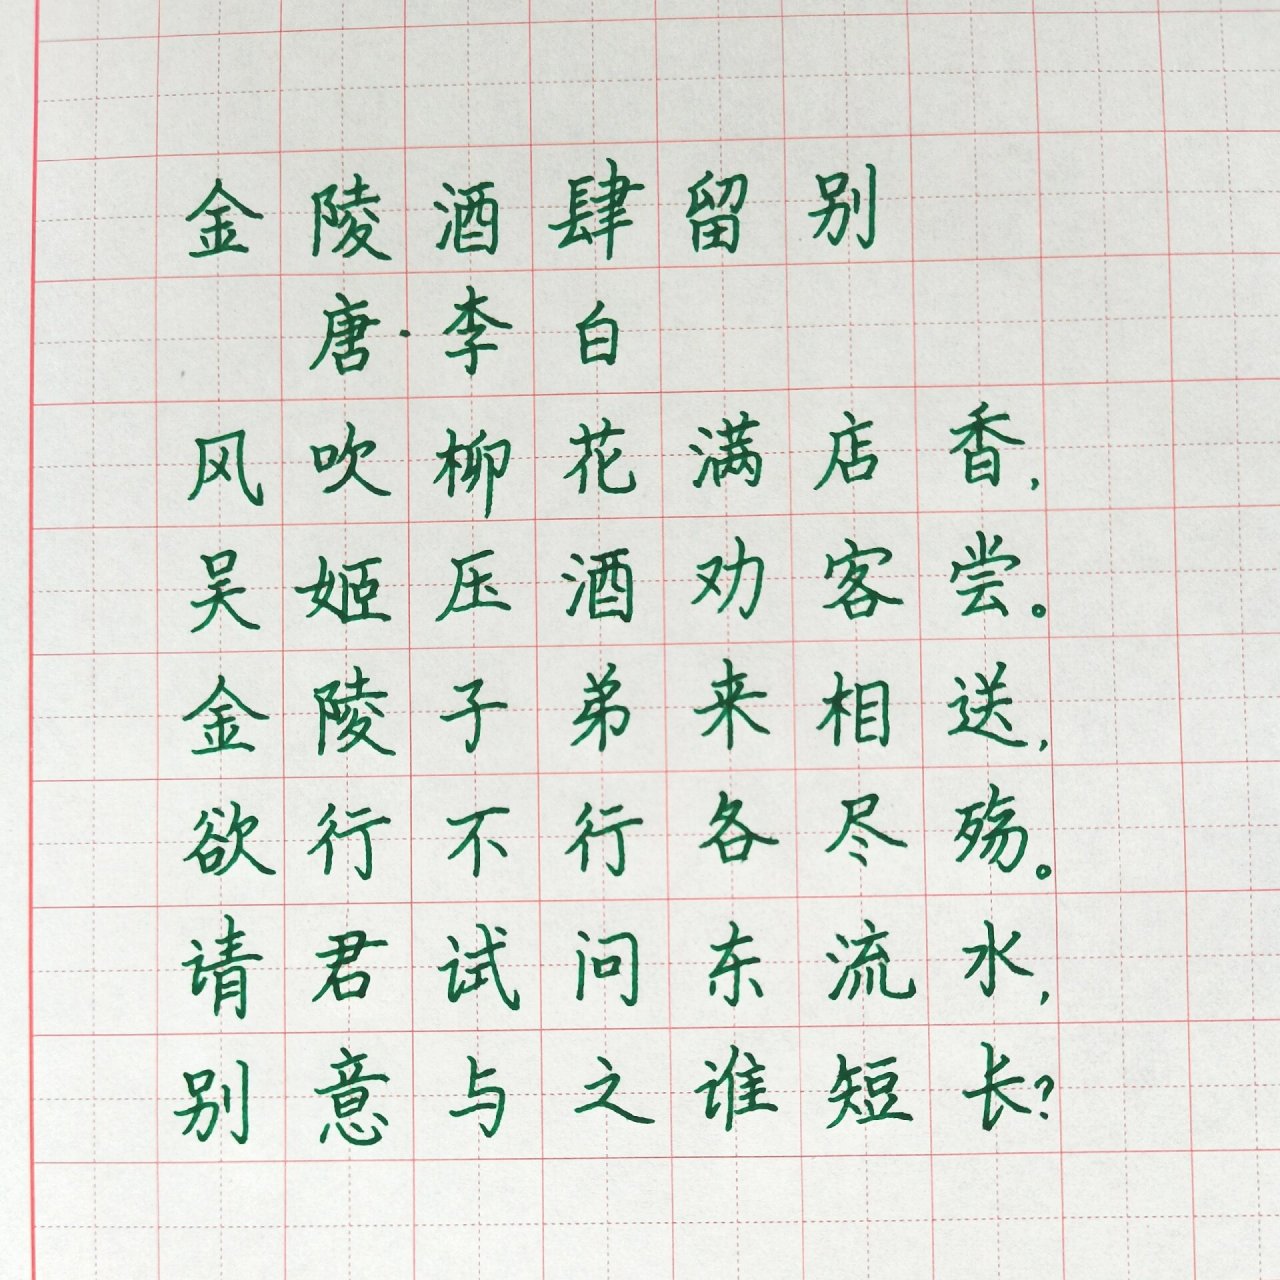 金陵酒肆留别
唐·李白
风吹柳花满店香,
吴姬压酒劝客尝。
金陵子弟来相送,
欲行不行各尽殇。
请君试问东流水,
别意与之谁短长?